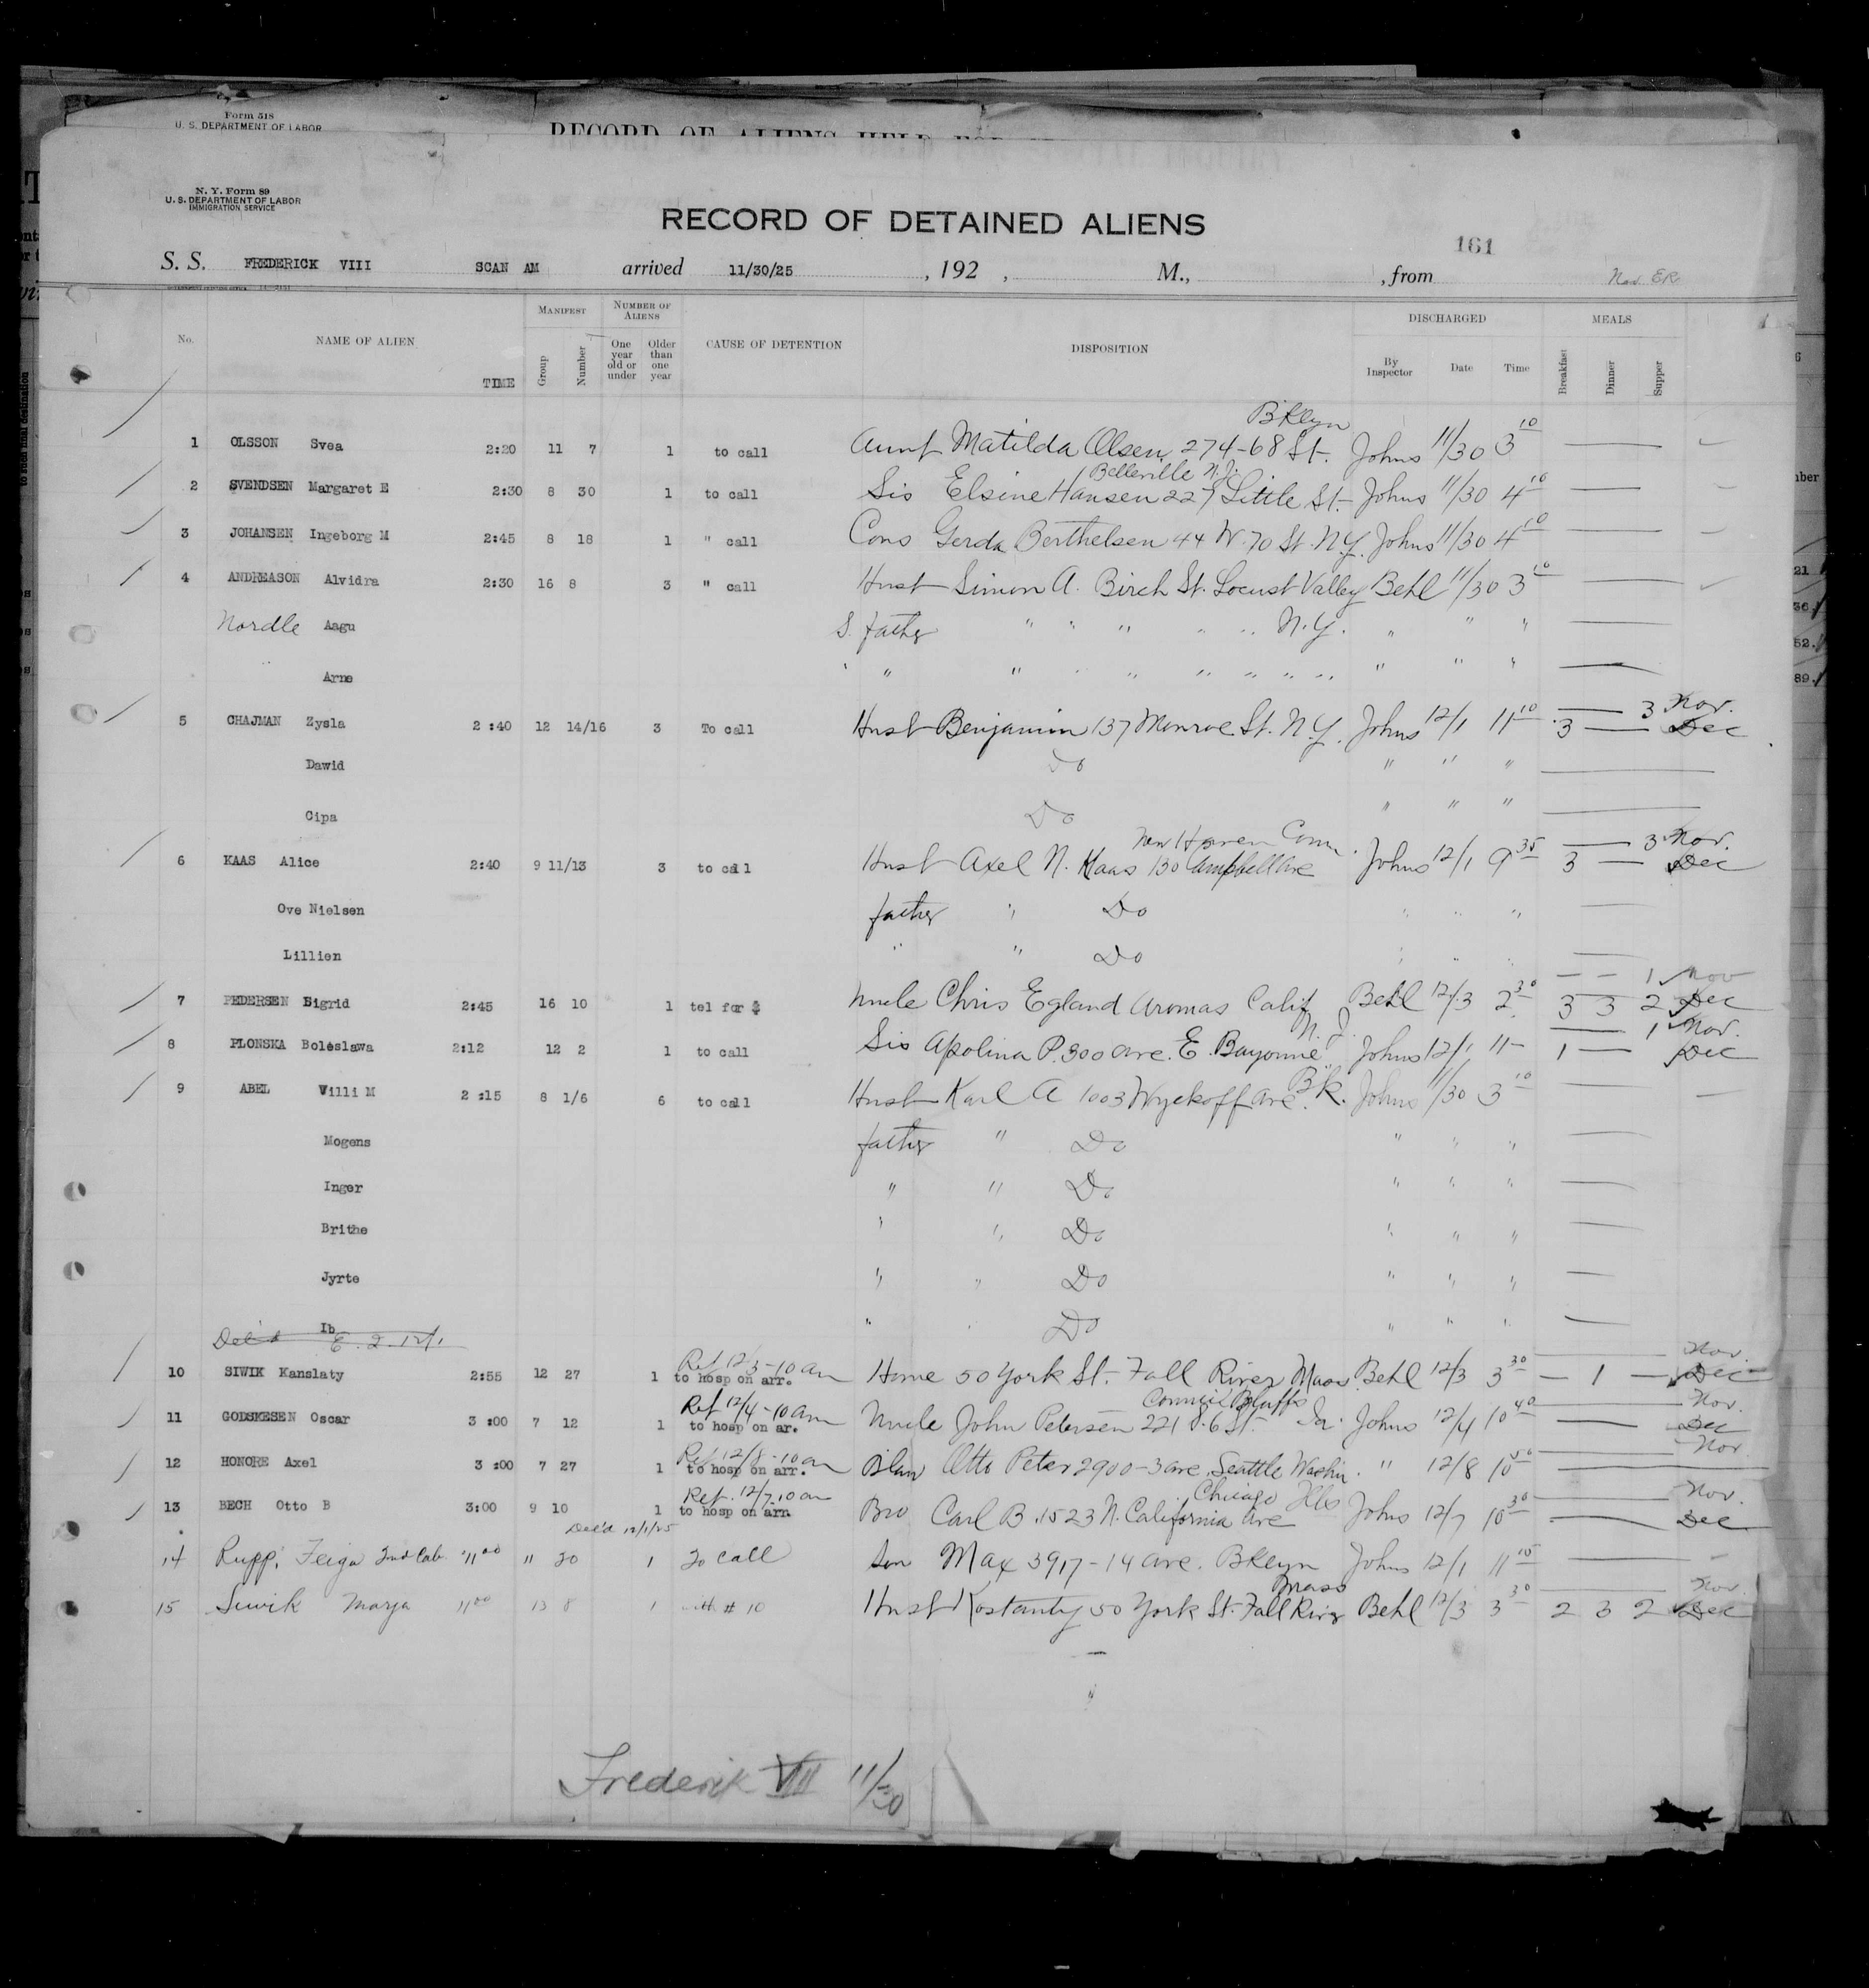 Form 518
U. S. DEPARTMENT OF LABOR
RECORD OF ALIENS HELD FOR
N. Y. Form 89
U. S. DEPARTMENT OF LABOR
IMMIGRATION SERVICE
RECORD OF DETAINED ALIENS
161
S. S. FREDERICK VIII SCAN AM arrived 11/30/25 , 192 , M., , from
Nov. ER
No. NAME OF ALIEN TIME MANIFEST Group Number NUMBER OF ALIENS One year old or under Older than one year CAUSE OF DETENTION DISPOSITION DISCHARGED By Inspector Date Time MEALS Breakfast Dinner Supper
Bklyn
1 OLSSON Svea 2:20 11 7 1 to call Aunt Matilda Olsen 274-68 St. Johns 11/30 3 10
Belleville N.J.
2 SVENDSEN Margaret E 2:30 8 30 1 to call Sis Elsine Hansen 227 Little St. Johns 11/30 4 10
3 JOHANSEN Ingeborg M 2:45 8 18 1 " call Cons Gerda Berthelsen 44 W. 70 St. N.Y. Johns 11/30 4 10
4 ANDREASON Alvidra 2:30 16 8 3 " call Husb Simon A. Birch St. Locust Valley Behl 11/30 3 10
Nordle Aagu S. father " " " " " N.Y. " " "
Arne " " " " " " " " " " "
3 Nov.
5 CHAJMAN Zysla 2:40 12 14/16 3 To call Husb Benjamin 137 Monroe St. N.Y. Johns 12/1 11 10 3 Dec
Dawid Do " " "
Cipa Do " " "
New Haven Conn. 3 Nov.
6 KAAS Alice 2:40 9 11/13 3 to call Husb Axel N. Kaas 130 Campbell Ave Johns 12/1 9 35 3 Dec
Ove Nielsen father " Do " " "
Lillien " " Do " " "
1 Nov
7 PEDERSEN Sigrid 2:45 16 10 1 tel for $ Uncle Chris Egland Aromas Calif Behl 12/3 2 30 3 3 2 Dec
N. J. 1 Nov.
8 PLONSKA Boleslawa 2:12 12 2 1 to call Sis Apolina P. 300 Ave. E. Bayonne Johns 12/1 11 1 Dec
9 ABEL Willi M 2:15 8 1/6 6 to call Husb Karl A 1003 Wyckoff Ave. Bk. Johns 11/30 3 10
Mogens father " Do " " "
Inger " " Do " " "
Brithe " " Do " " "
Jyrte " " Do " " "
Ib " " Do " " "
Dec'd E. 2. 12/1
Ret 12/3-10 am Nov.
10 SIWIK Kanslaty 2:55 12 27 1 to hosp on arr. Home 50 York St. Fall River Mass Behl 12/3 3 30 1 Dec
Ret 12/4-10 am Council Bluffs Nov.
11 GODSKESEN Oscar 3:00 7 12 1 to hosp on ar. Uncle John Petersen 221 S. 6 St. Ia. Johns 12/4 10 40 Dec
Ret 12/8-10 am Nov
12 HONORE Axel 3:00 7 27 1 to hosp on arr. B law Otto Peter 2900-3 ave. Seattle Washn. " 12/8 10 50
Ret. 12/7 10 am Chicago Ills Nov.
13 BECH Otto B 3:00 9 10 1 to hosp on arr. Bro Carl B. 1523 N. California Ave Johns 12/7 10 30 Dec
Dec'd 12/1/25
14 Rupp, Feiga 2nd Cab. 11 00 " 20 1 To call Son Max 3917-14 ave. Bklyn Johns 12/1 11 15
Mass Nov.
15 Siwik Marya 11 00 13 8 1 with # 10 Husb Kostanty 50 York St. Fall River Behl 12/3 3 30 2 3 2 Dec
Frederik VIII 11/30